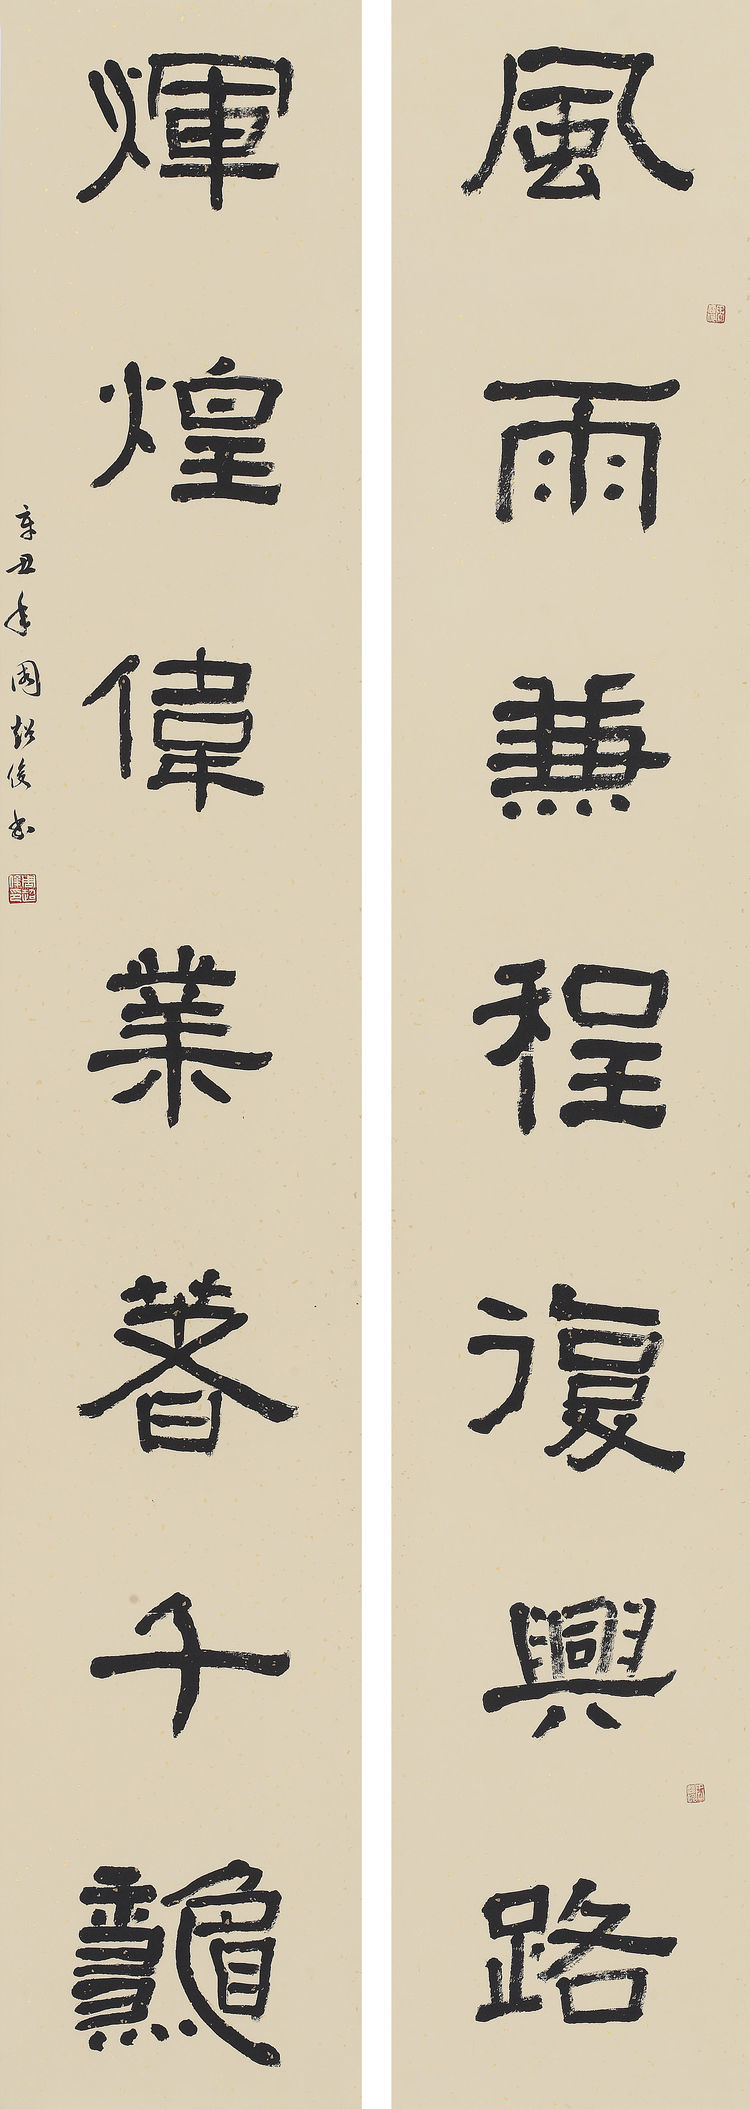 風雨兼程復興路
煇煌偉業著千龝
辛丑年周超俊書